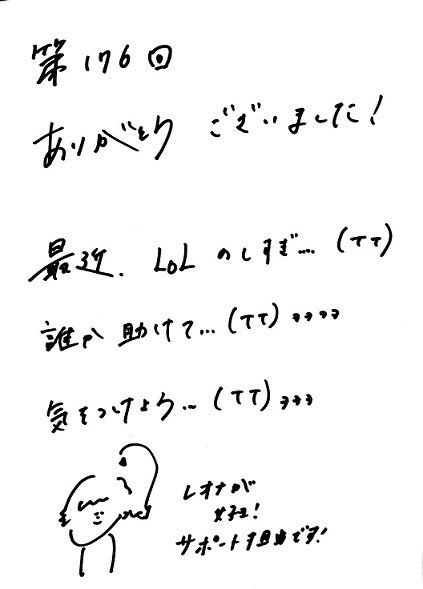 第176回
ありがとう ございました!
最近、LoL のしすぎ… (TT)
誰か 助けて… (TT) ョョョョ
気をつけよう… (TT) ョョョ
レオナが
好き!
サポート担当です!